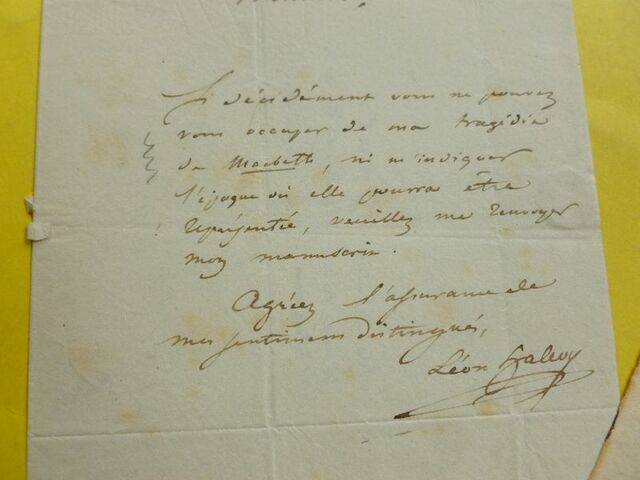 Monsieur,
Si décidément vous ne pouvez
vous occuper de ma tragédie
de Macbeth, ni m'indiquer
l'époque où elle pourra être
représentée, veuillez me renvoyer
mon manuscrit.
Agréez l'assurance de
mes sentimens distingués,
Léon Halévy